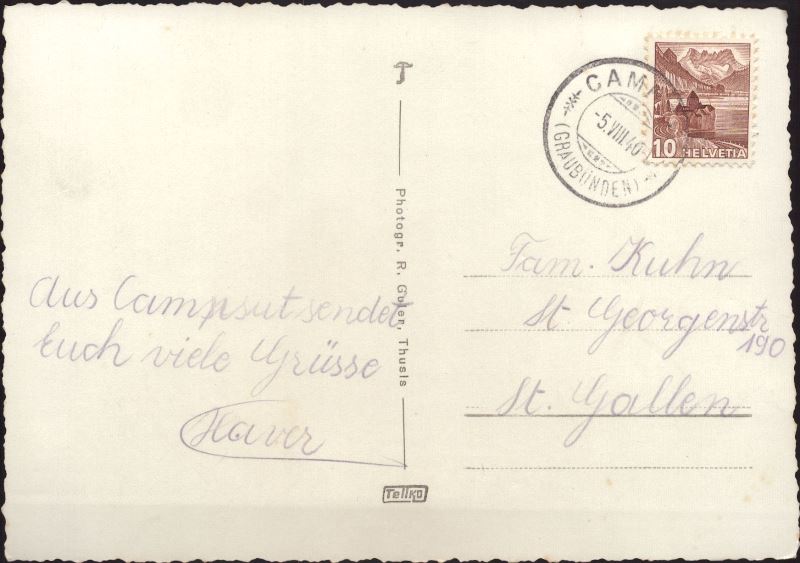 Aus Campsut sendet
Euch viele Grüsse
Photogr. R. Guler, Thusis
Tellko
CAM
-5.VIII.40-
(GRAUBÜNDEN)
10 HELVETIA
Fam. Kuhn
St. Georgenstr
190
St. Gallen